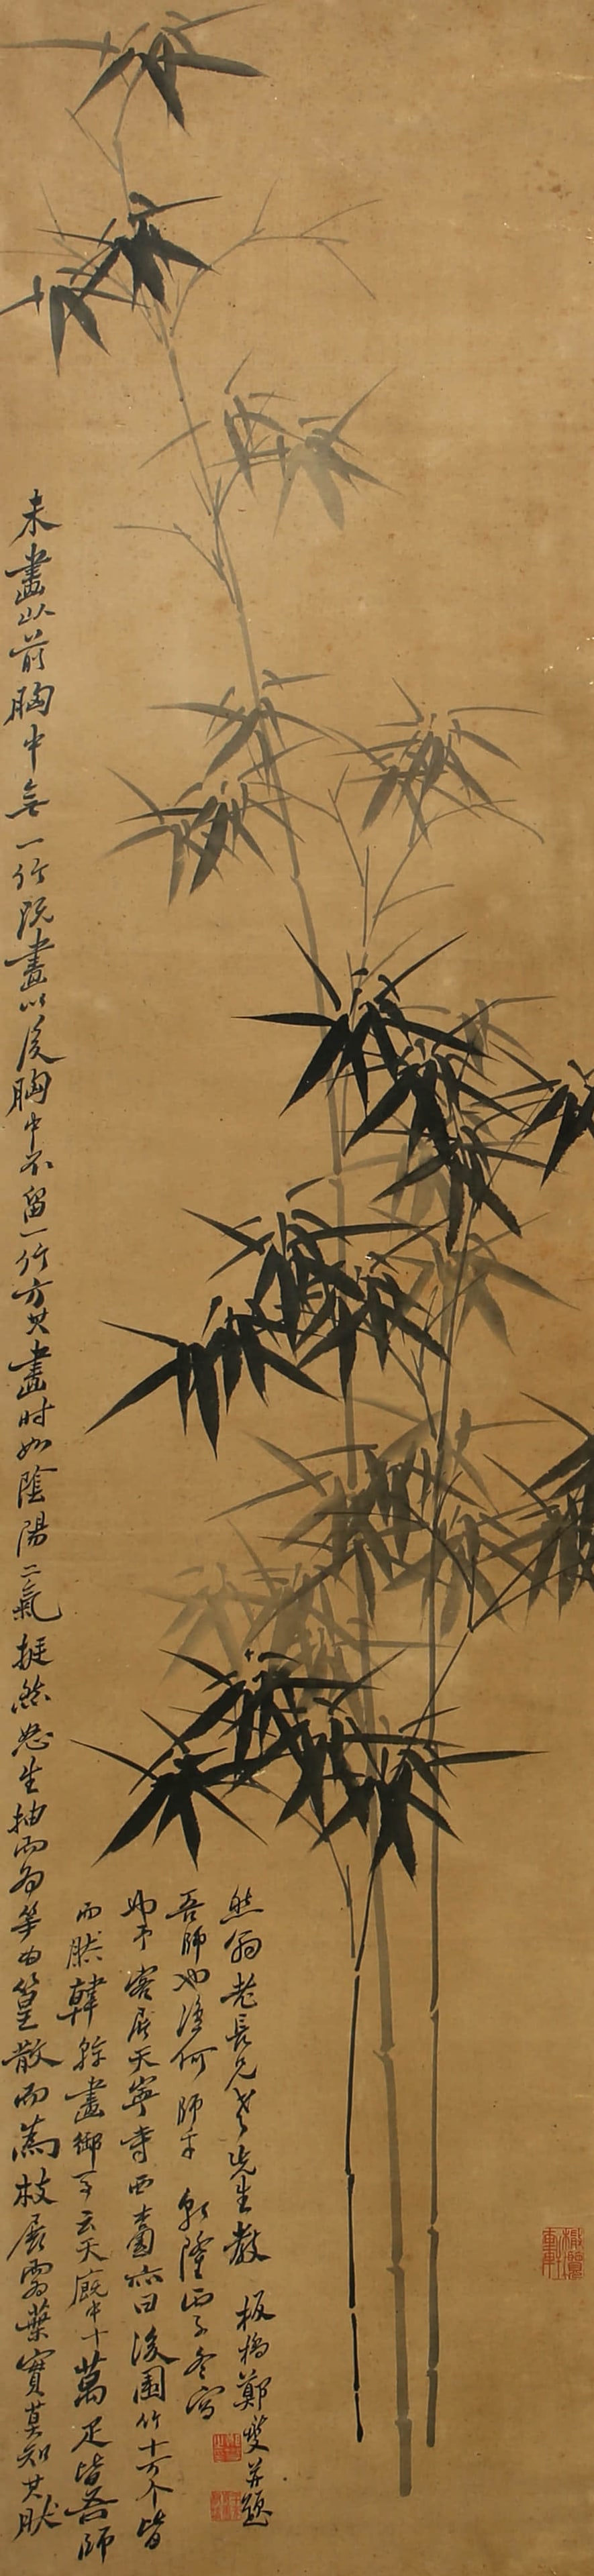 未畫以前胸中無一竹既畫以後胸中不留一竹方其畫時如陰陽二氣挺然怒生抽而為笋為篁散而為枝展為葉實莫知其然
而然韓幹畫御馬云天廐中十萬疋皆吾師
也予客居天寧寺西杏園亦曰後園竹十万个皆
吾師也復何師乎 乾隆丙子冬寫
然翁老長兄老先生教 板橋鄭燮并題
橄欖軒